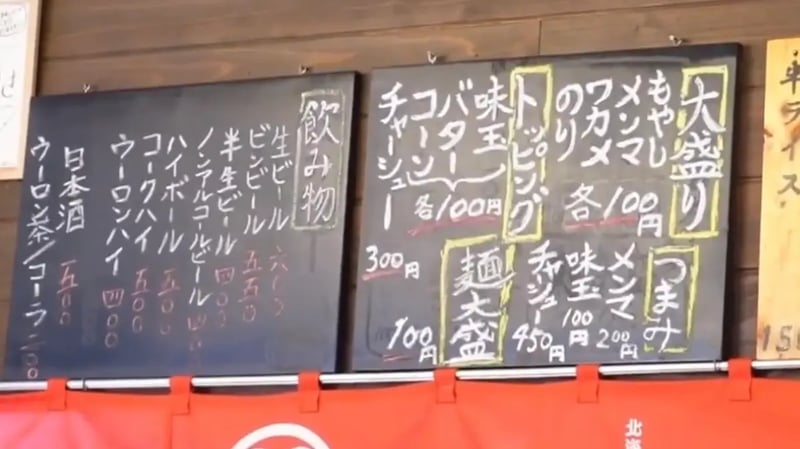 大盛り
もやし
メンマ
ワカメ
のり
各100円
トッピング
味玉
バター
コーン
各100円
チャーシュー
300円
つまみ
メンマ
200円
味玉
100円
チャーシュー
450円
麺大盛
100円
飲み物
生ビール 六〇〇
ビンビール 五五〇
半生ビール 四〇〇
ノンアルコールビール 四〇〇
ハイボール 五〇〇
コークハイ 五〇〇
ウーロンハイ 四〇〇
日本酒 五〇〇
ウーロン茶/コーラ 二〇〇
ライス
北海